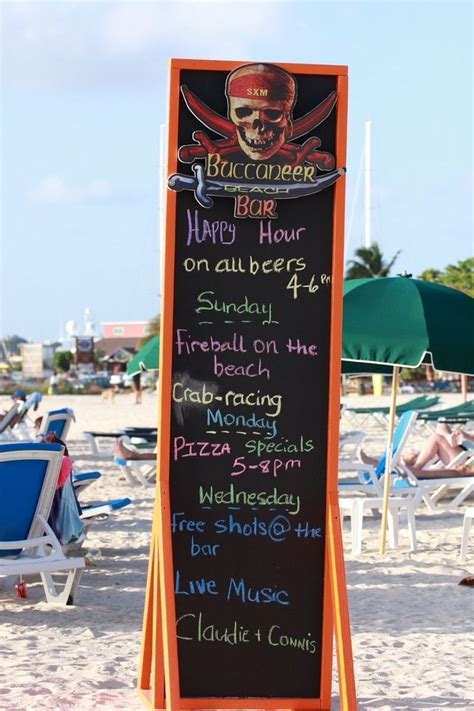 SXM
BUCCANEER
BEACH
BAR
Happy Hour
on all beers
4-6PM
Sunday
Fireball on the
beach
Crab-racing
Monday
PIZZA specials
5-8pm
Wednesday
Free shots@the
bar
Live Music
Claudie + Connis